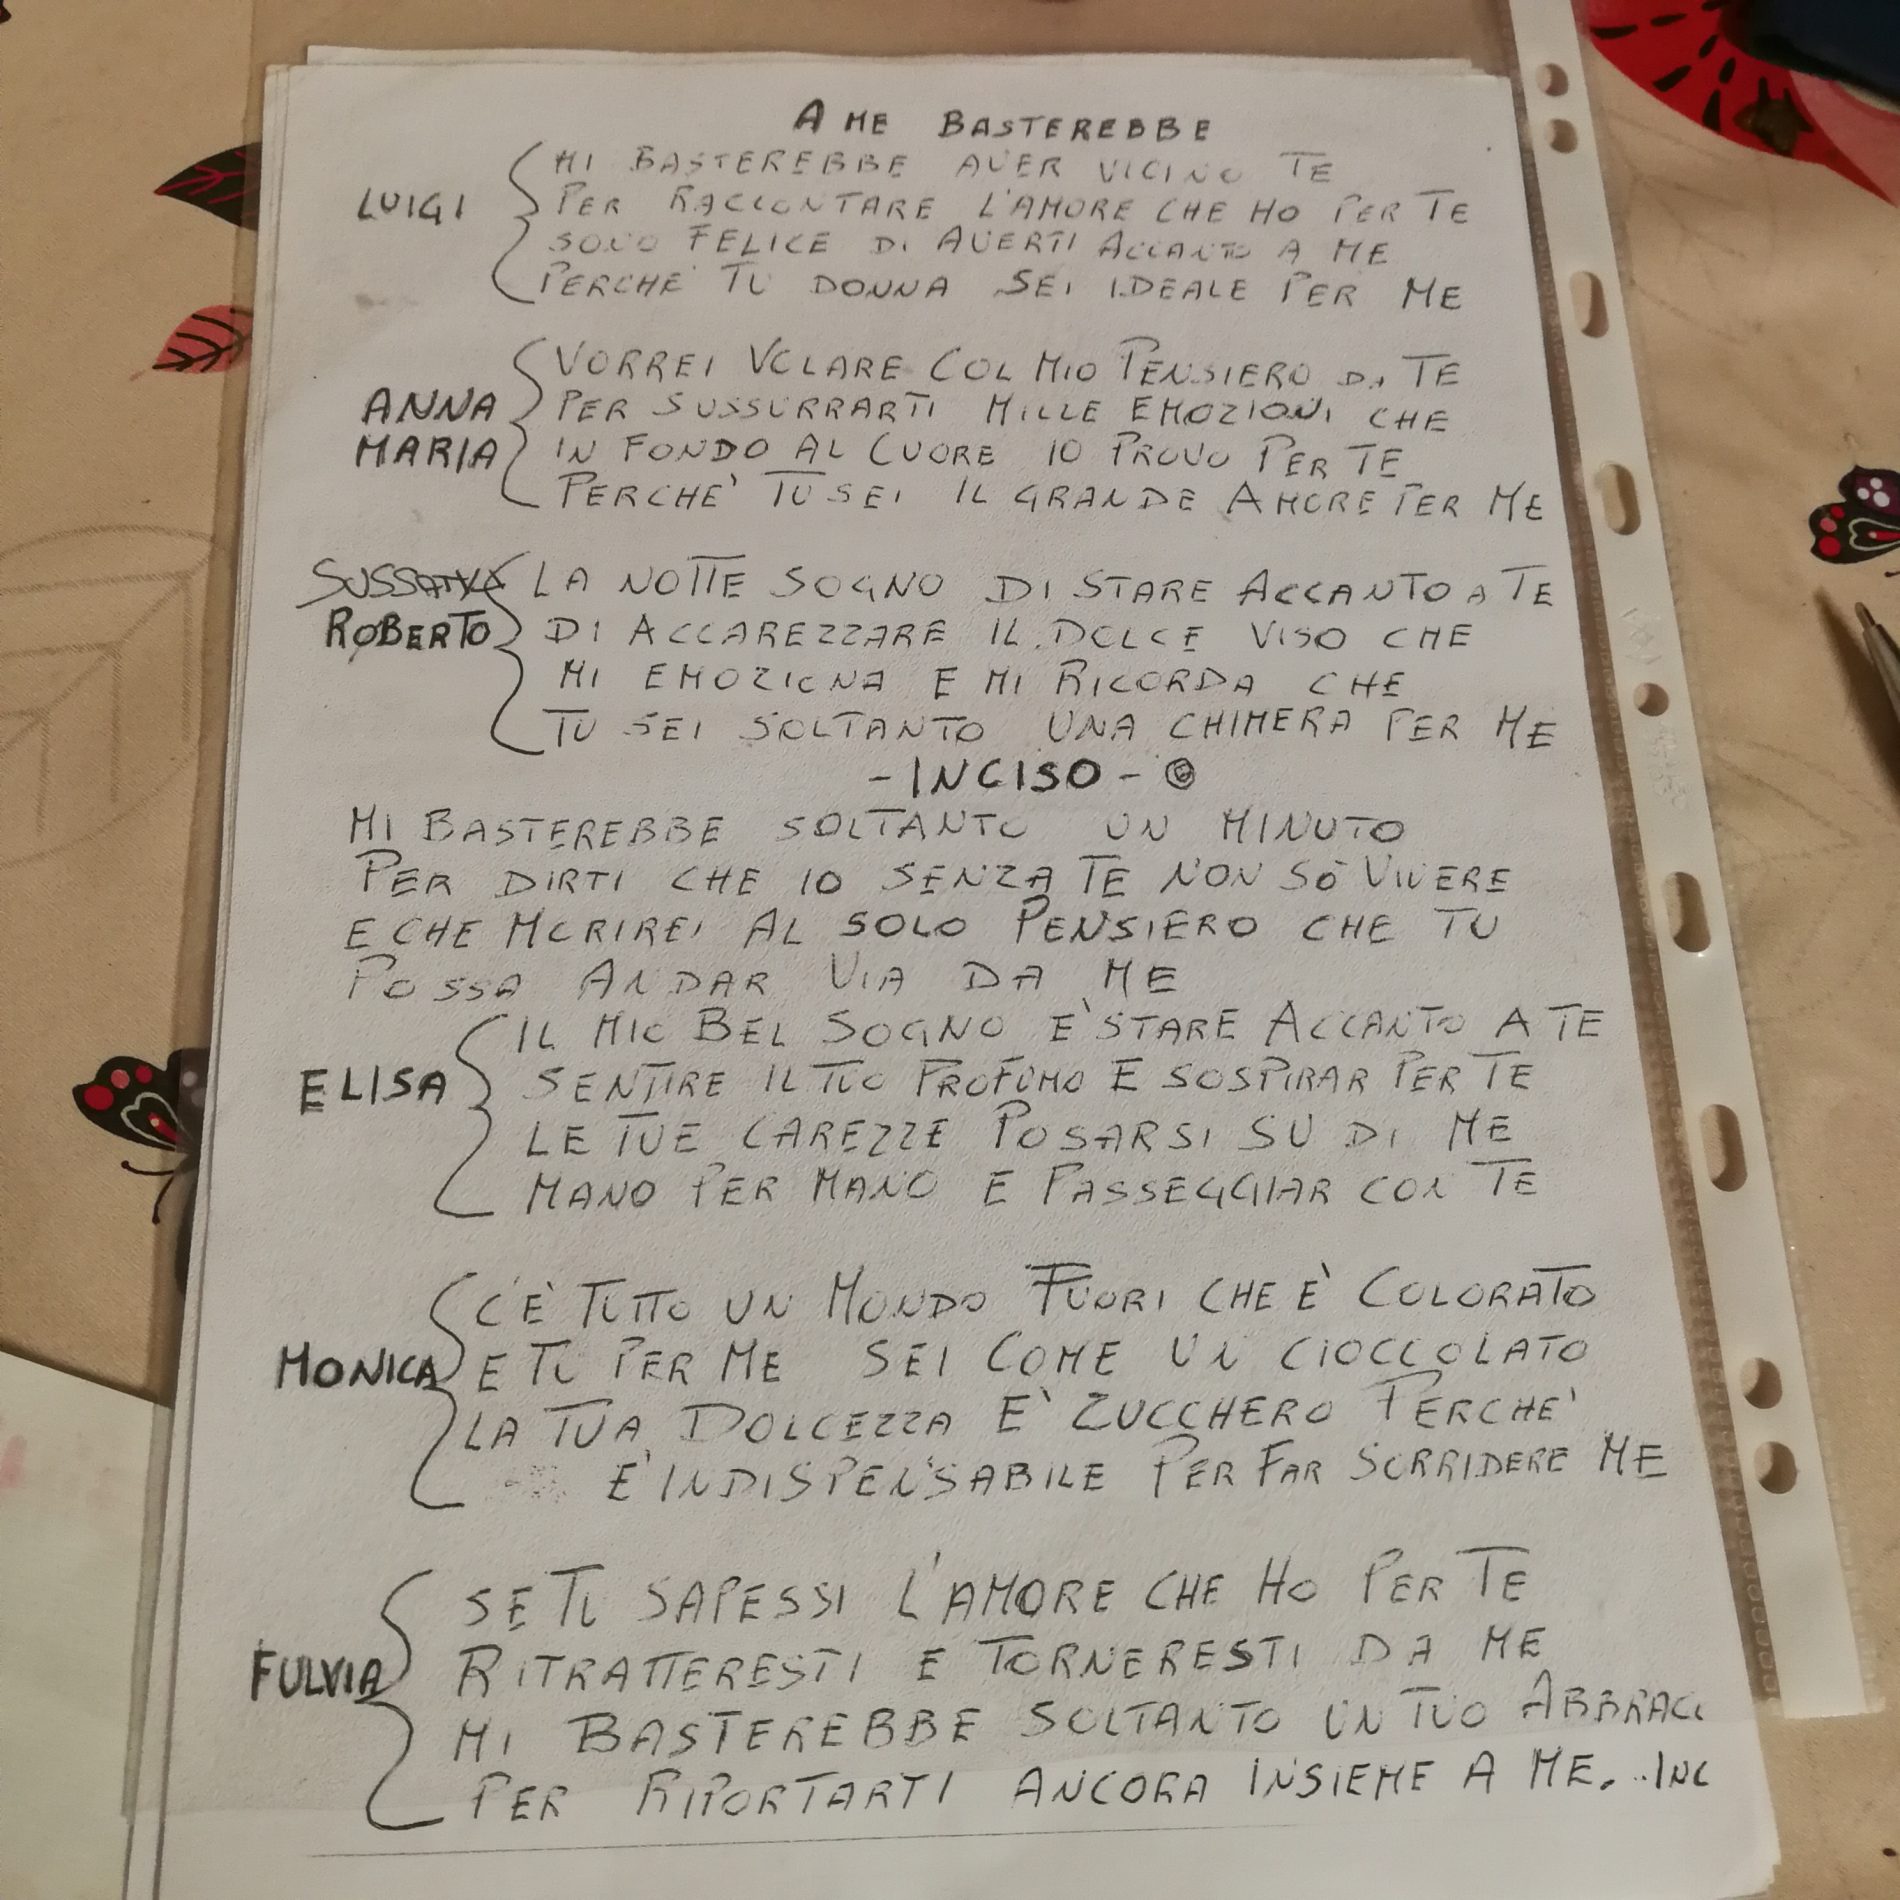 A ME BASTEREBBE
MI BASTEREBBE AVER VICINO TE
LUIGI
PER RACCONTARE L'AMORE CHE HO PER TE
SONO FELICE DI AVERTI ACCANTO A ME
PERCHE' TU DONNA SEI IDEALE PER ME
VORREI VOLARE COL MIO PENSIERO DA TE
ANNA
PER SUSSURRARTI MILLE EMOZIONI CHE
MARIA
IN FONDO AL CUORE IO PROVO PER TE
PERCHE' TU SEI IL GRANDE AMORE PER ME
LA NOTTE SOGNO DI STARE ACCANTO A TE
ROBERTO
DI ACCAREZZARE IL DOLCE VISO CHE
MI EMOZIONA E MI RICORDA CHE
TU SEI SOLTANTO UNA CHIMERA PER ME
- INCISO -
MI BASTEREBBE SOLTANTO UN MINUTO
PER DIRTI CHE IO SENZA TE NON SÒ VIVERE
E CHE MORIREI AL SOLO PENSIERO CHE TU
POSSA ANDAR VIA DA ME
IL MIO BEL SOGNO E' STARE ACCANTO A TE
ELISA
SENTIRE IL TUO PROFUMO E SOSPIRAR PER TE
LE TUE CAREZZE POSARSI SU DI ME
MANO PER MANO E PASSEGGIAR CON TE
C'È TUTTO UN MONDO FUORI CHE È COLORATO
MONICA
E TU PER ME SEI COME UN CIOCCOLATO
LA TUA DOLCEZZA E' ZUCCHERO PERCHE'
E' INDISPENSABILE PER FAR SORRIDERE ME
SE TU SAPESSI L'AMORE CHE HO PER TE
FULVIA
RITRATTERESTI E TORNERESTI DA ME
MI BASTEREBBE SOLTANTO UN TUO ABBRACC
PER RIPORTARTI ANCORA INSIEME A ME. ..INC